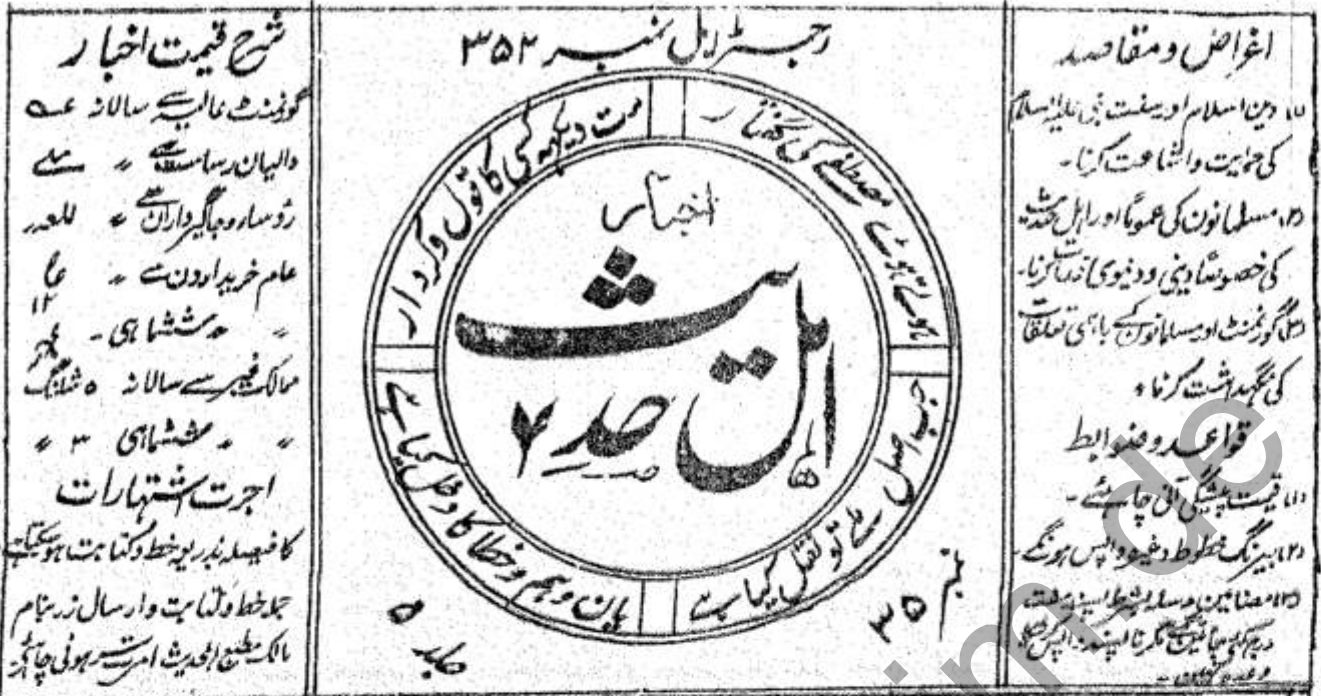 اغراض و مقاصد
(۱) دین اسلام اور سنت نبی علیہ السلام
کی حمایت و اشاعت کرنا۔
(۲) مسلمانوں کی عموماً اور اہل حدیث
کی خصوصاً دینی و دنیوی خدمات کرنا۔
(۳) گورنمنٹ اور مسلمانوں کے باہمی تعلقات
کی نگہداشت کرنا۔
قواعد و ضوابط
(۱) قیمت پیشگی آنی چاہئے۔
(۲) بیرنگ خطوط وغیرہ واپس ہونگے۔
(۳) مضامین مرسلہ بشرط پسند مفت
درج
رجسٹرڈ ایل نمبر ۳۵۲
ہوتے ہوئے مصطفٰے کی گفتار
مت دیکھہ کسی کا قول و کردار
جب اصل ملے تو نقل کیا ہے
یاں وہم و خطا کا دخل کیا ہے
اخبار
اہل حدیث
نمبر ۳۵
جلد ۵
شرح قیمت اخبار
گورنمنٹ عالیہ سے سالانہ
والیان ریاست سے 〃
رؤساء و جاگیرداران سے 〃
عام خریداروں سے 〃
〃 〃 ششماہی ۔
ممالک غیر سے سالانہ ۵ شلنگ
〃 〃 ششماہی ۳ 〃
اجرت اشتہارات
کا فیصلہ بذریعہ خط و کتابت ہو سکتا ہے
جملہ خط و کتابت و ارسال زر بنام
مالک مطبع اہلحدیث امرتسر ہونی چاہئے